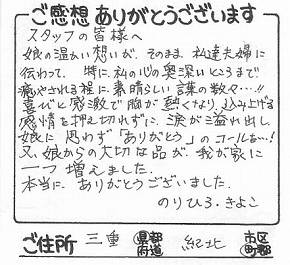 ご感想 ありがとうございます
スタッフの皆様へ
娘の温かい想いが、そのまま 私達夫婦に
伝わって、特に、私の心の奥深いところまで
癒やされる程に、素晴らしい言葉の数々…!!
喜びと感激で胸が熱くなり、込み上げる
感情を押え切れずに、涙が溢れ出し
娘に思わず「ありがとう」のコールを…!
又、娘からの大切な品が、我が家に
一つ増えました.
本当に、ありがとうございました.
のりひろ・きよこ
ご住所 三重 都道府県 紀北 市区町郡